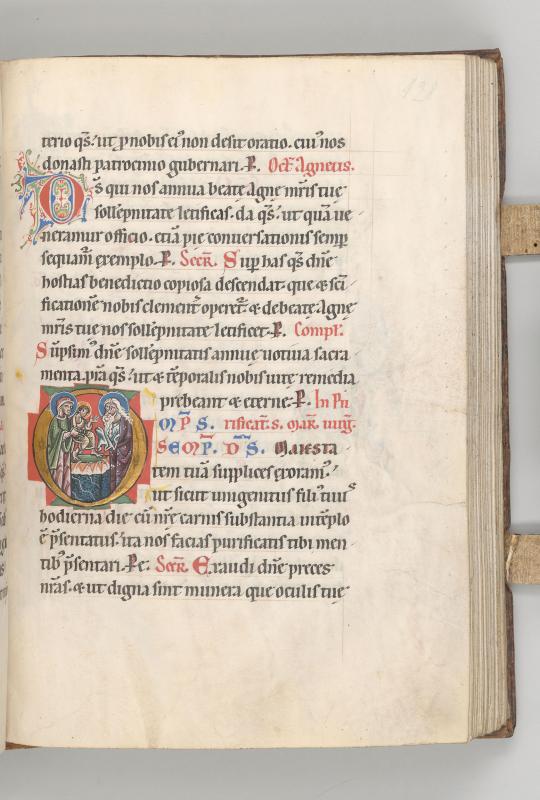 terio qs. ut pnobis ei non desit oratio. cui nos
donasti patrocinio gubernari. P. Oct Agnetis.
Ds qui nos annua beate Agne mris tue
sollepnitate letificas. da qs. ut quā ue
neramur officio. etiā pie conuersationis semp
sequam exemplo. P. Secr. Sup has qs dne
hostias benedictio copiosa descendat. que & sci
ficationē nobis clement operet & de beate Agne
mris tue nos sollepnitate letificet. P. Compl.
Supsim dne sollepnitatis annue uotiua sacra
menta. pta qs. ut & tēporalis nobis uite remedia
prebeant & eterne. P. In Pu
rificat. s. mar. uirg.
OMP S.
SEMP. DS. maiesta
tem tuā supplices exoram.
ut sicut unigenitus filius tuus
hodierna die cū nre carnis substantia in tēplo
ē psentatus. ita nos facias purificatis tibi men
tib psentari. Pe. Secr. Exaudi dne preces
nras. & ut digna sint munera que oculis tue